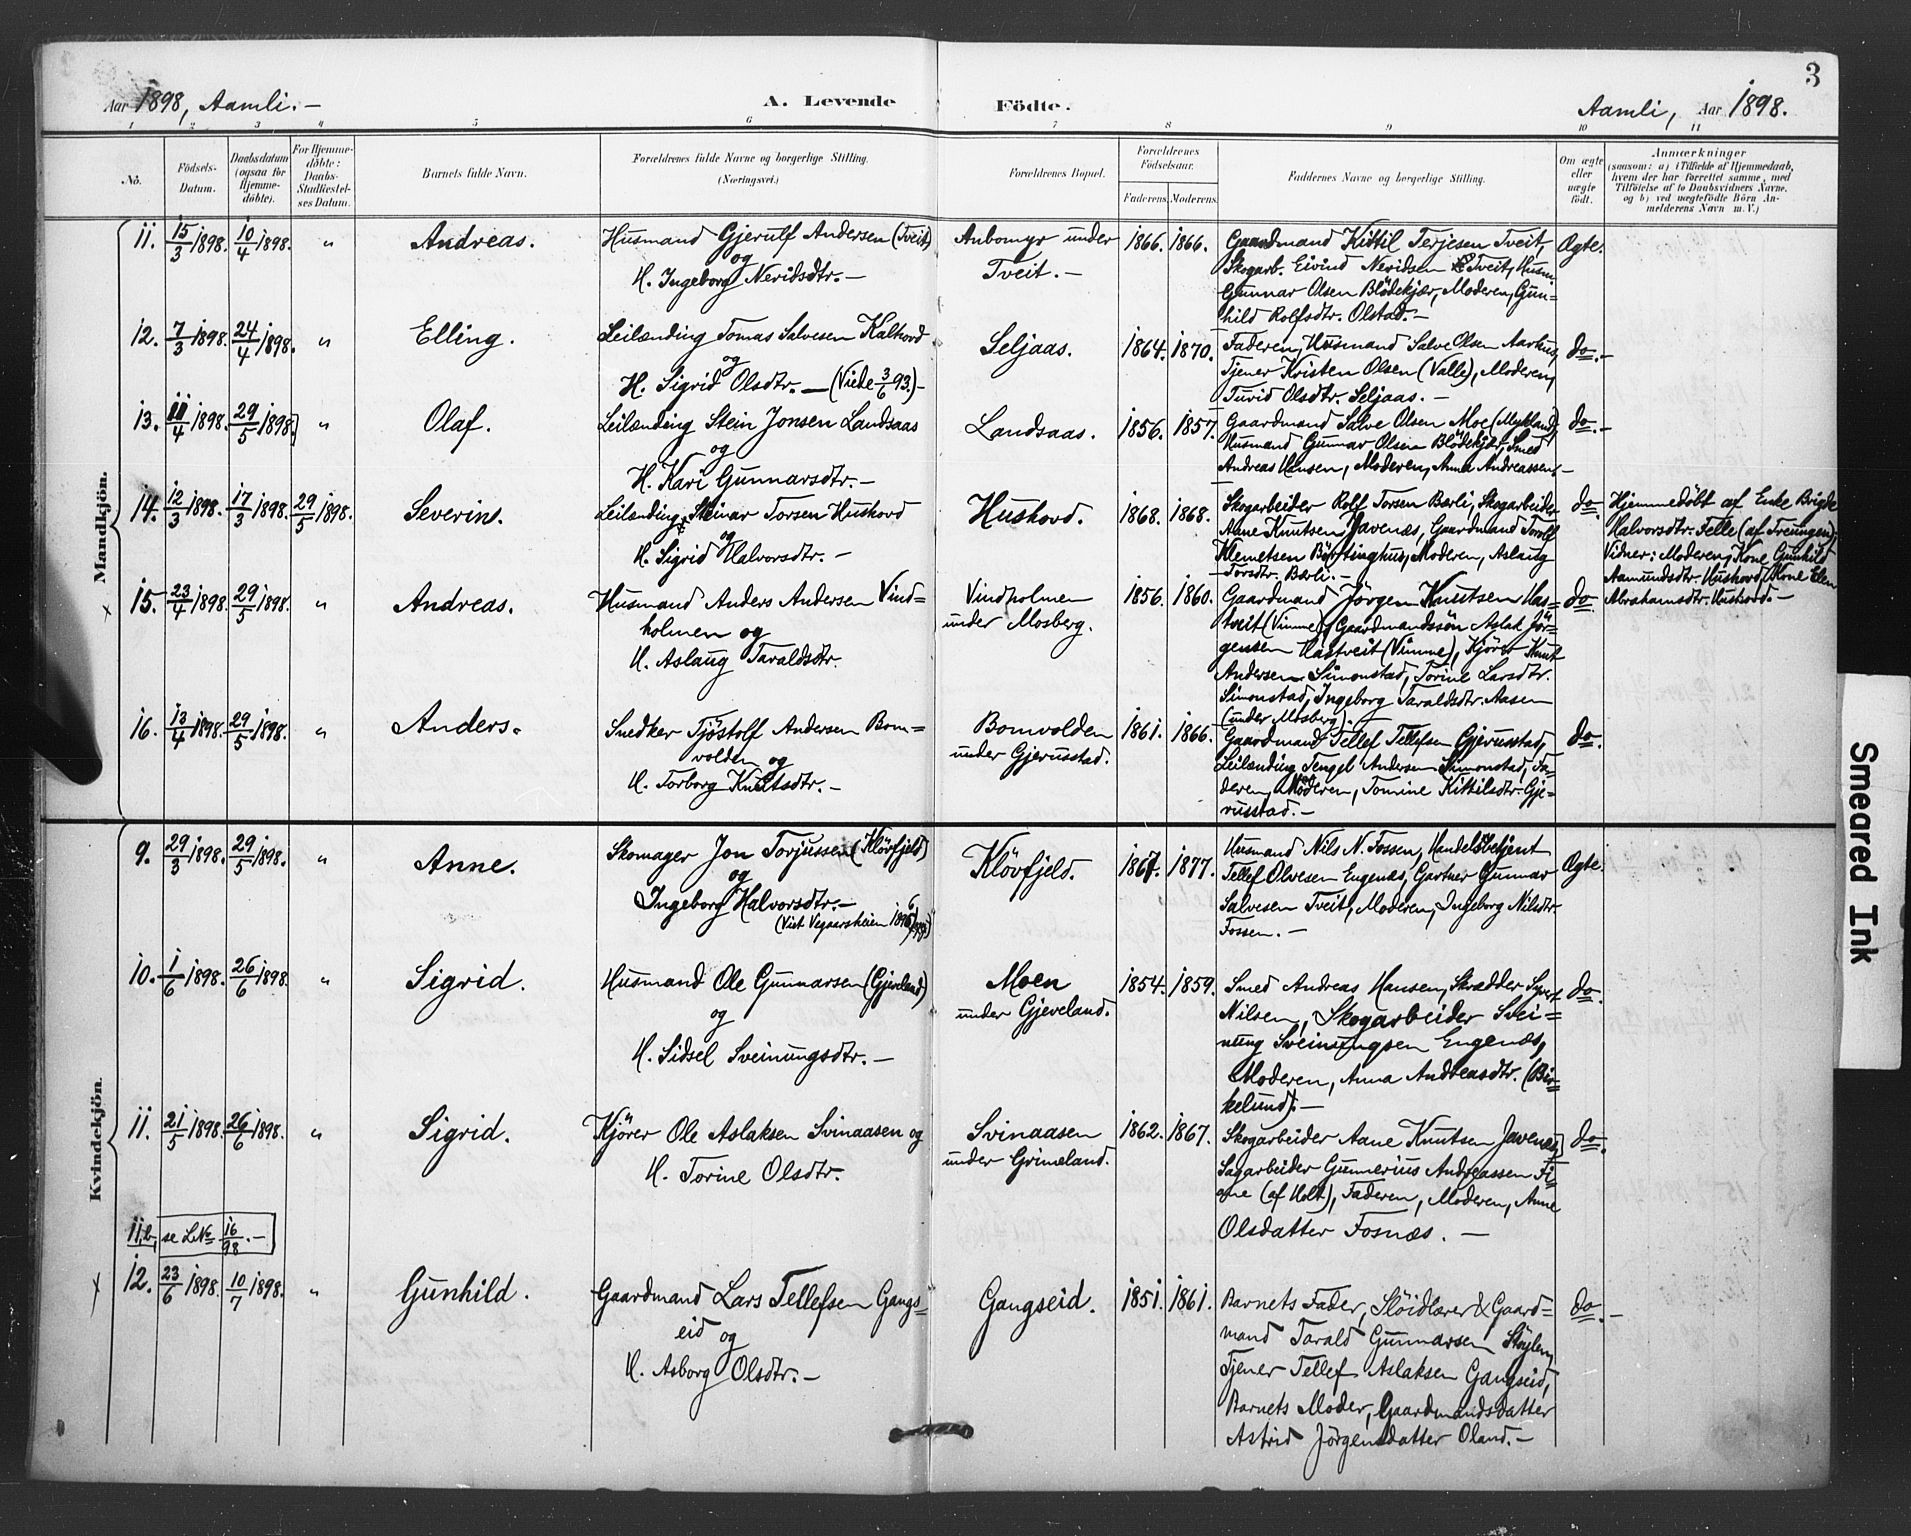 3
Aar 1898, Aamli. –
A. Levende
Födte.
Aamli, Aar 1898.
1 2 3 4 5 6 7 8 9 10 11
No.
Födsels-
Datum.
Daabsdatum
(ogsaa för
Hjemme-
döbte).
For Hjemme-
döbte:
Daabs-
Stadfæstel-
ses Datum.
Barnets fulde Navn.
Forældrenes fulde Navne og borgerlige Stilling.
(Næringsvei.)
Forældrenes Bopæl.
Forældrenes
Födselsaar.
Faderens. Moderens.
Faddernes Navne og borgerlige Stilling.
Om ægte
eller
uægte
födt.
Anmærkninger
(saasom: a) i Tilfælde af Hjemmedaab,
hvem der har forrettet samme, med
Tilföielse af to Daabsvidners Navne,
og b) ved uægtefödte Börn An-
melderens Navn m. V.)
Mandkjön.
11. 15/3 1898. 10/4 1898. " Andreas.
Husmand Gjerulf Andersen (Tveit)
og
H. Ingeborg Neridsdtr. –
Anbomyr under
Tveit. –
1866. 1866.
Gaardmand Kittil Terjesen Tveit,
Skogarb. Eivind Neridsen Tveit, Husm.
Gunnar Olsen Blödekjær, Moderen, Gun=
hild Rolfsdtr. Olstad. –
Ægte.
12. 7/3 1898. 24/4 1898. " Elling.
Leilænding Tomas Salvesen Kalhovd
og
H. Sigrid Olsdtr. – (Viede 3/6 93.) –
Seljaas.
1864. 1870.
Faderen, Husmand Salve Olsen Aarhus,
Tjener Kristen Olsen (Valle), Moderen,
Turid Olsdtr. Seljaas. –
do. –
13. 11/4 1898. 29/5 1898. " Olaf.
Leilænding Stein Jonsen Landsaas
og
H. Kari Gunnarsdtr. –
Landsaas.
1856. 1857.
Gaardmand Salve Olsen Moe (Mykland),
Husmand Gunnar Olsen Blödekjær, Smed
Andreas Hansen, Moderen, Anna Andreassen. –
do. –
14. 12/3 1898. 17/3 1898. 29/5 1898. Severin.
Leilænding Steinar Torsen Hushovd
og
H. Sigrid Halvorsdtr. –
Hushovd.
1868. 1868.
Skogarbeider Rolf Torsen Bærli, Skogarbeider
Aane Knutsen Javenæs, Gaardmand Torolf
Klemetsen Börtinghus, Moderen, Aslaug
Torsdtr. Bærli. –
do.
Hjemmedöbt af Enke Brigde
Halvorsdtr. Felle (af Treungen),
Vidner: Moderen, Kone Gunhild
Aamundsdtr. Hushovd, Kone Elen
Abrahamsdtr. Hushovd. –
x 15. 23/4 1898. 29/5 1898. " Andreas.
Husmand Anders Andersen Vind=
holmen og
H. Aslaug Taraldsdtr.
Vindholmen
under Mosberg.
1856. 1860.
Gaardmand Jörgen Knutsen Has=
tveit (Vimme), Gaardmandssön Aslak Jör=
gensen Hastveit (Vimme), Kjörer Knut
Andersen Simonstad, Torine Larsdtr.
Simonstad, Ingeborg Taraldsdtr. Aasen
(under Mosberg). –
do.
16. 13/4 1898. 29/5 1898. " Anders.
Snedker Tjöstolf Andersen Bom=
volden og
H. Torborg Knutsdtr. –
Bomvolden
under Gjerusstad.
1861. 1866.
Gaardmand Tellef Tellefsen Gjerusstad,
Leilænding Tengel Andersen Simonstad, Fa=
deren, Moderen, Tomine Kittilsdtr. Gje=
russtad. –
do.
Kvindekjön.
9. 29/3 1898. 29/5 1898. " Anne.
Skomager Jon Torjussen (Klövfjeld)
og
Ingeborg Halvorsdtr. –
(Viet Vegaarsheien 1896)
Klövfjeld.
1867. 1877.
Husmand Nils N. Fossen, Handelsbetjent
Tellef Olvesen Engenæs, Gartner Gunnar
Salvesen Tveit, Moderen, Ingeborg Nilsdtr.
Fossen. –
Ægte.
10. 1/6 1898. 26/6 1898. " Sigrid.
Husmand Ole Gunnarsen (Gjeveland)
og
H. Sidsel Sveinungsdtr. –
Moen
under Gjeveland.
1854. 1859.
Smed Andreas Hansen, Skrædder Syvert
Nilsen, Skogarbeider Svei=
nung Sveinungsen Engenæs,
Moderen, Anna Andreasdtr. (Bir=
kelund). –
do.
11. 21/5 1898. 26/6 1898. " Sigrid.
Kjörer Ole Aslaksen Svinaasen og
H. Torine Olsdtr.
Svinaasen
under Grimeland.
1862. 1867.
Skogarbeider Aane Knutsen Javenæs,
Sagarbeider Gunnerius Andreassen Fi=
ane (af Holt), Faderen, Moderen, Anne
Olsdatter Fosnæs. –
do.
11,b, se LNo 16/98. –
x 12. 23/6 1898. 10/7 1898. " Gunhild.
Gaardmand Lars Tellefsen Gangs=
eid og
H. Asborg Olsdtr. –
Gangseid.
1851. 1861.
Barnets Fader, Slöidlærer & Gaard=
mand Tarald Gunnarsen Stöylen,
Tjener Tellef Aslaksen Gangseid,
Barnets Moder, Gaardmandsdatter
Astrid Jörgensdatter Oland. –
do. –
Smeared Ink